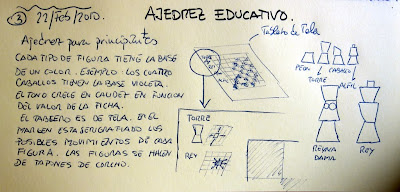 ③ 22/FEB/2010.
AJEDREZ EDUCATIVO.
Ajedrez para principiantes
CADA TIPO DE FIGURA TIENE LA BASE
DE UN COLOR. EJEMPLO: LOS CUATRO
CABALLOS TIENEN LA BASE VIOLETA.
EL TONO CRECE EN CALIDEZ EN FUNCION
DEL VALOR DE LA FICHA.
EL TABLERO ES DE TELA. EN EL
MARGEN ESTA SERIGRAFIADO LOS
POSIBLES MOVIMIENTOS DE CADA
FIGURA. LAS FIGURAS SE HACEN
DE TAPONES DE CORCHO.
Tablero de Tela
TORRE
REY
PEON
TORRE
CABALLO
ALFIL
REYNA
DAMA
REY